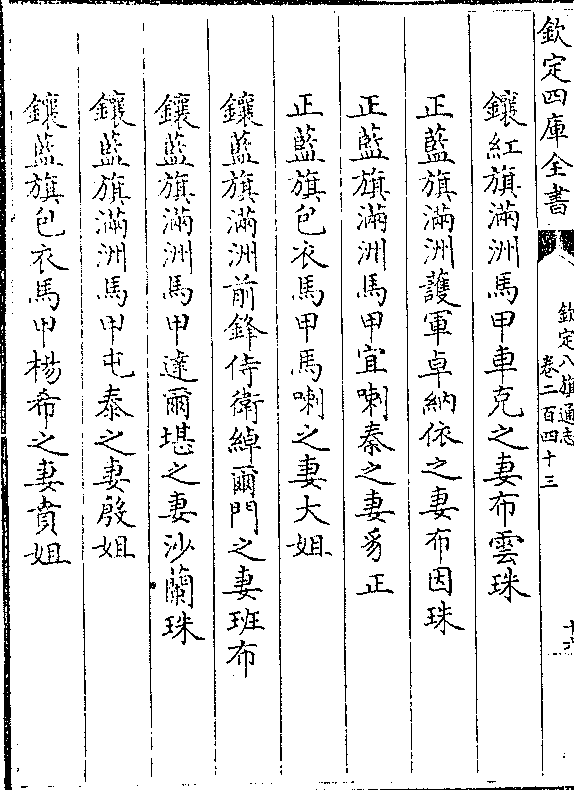 欽定四庫全書
欽定八旗通志
卷二百四十三
十六
鑲紅旗滿洲馬甲車克之妻布雲珠
正藍旗滿洲護軍卓納依之妻布因珠
正藍旗滿洲馬甲宜喇秦之妻豸正
正藍旗包衣馬甲馬喇之妻大姐
鑲藍旗滿洲前鋒侍衛綽爾門之妻班布
鑲藍旗滿洲馬甲達爾堪之妻沙蘭珠
鑲藍旗滿洲馬甲屯泰之妻殷姐
鑲藍旗包衣馬甲楊希之妻賁姐